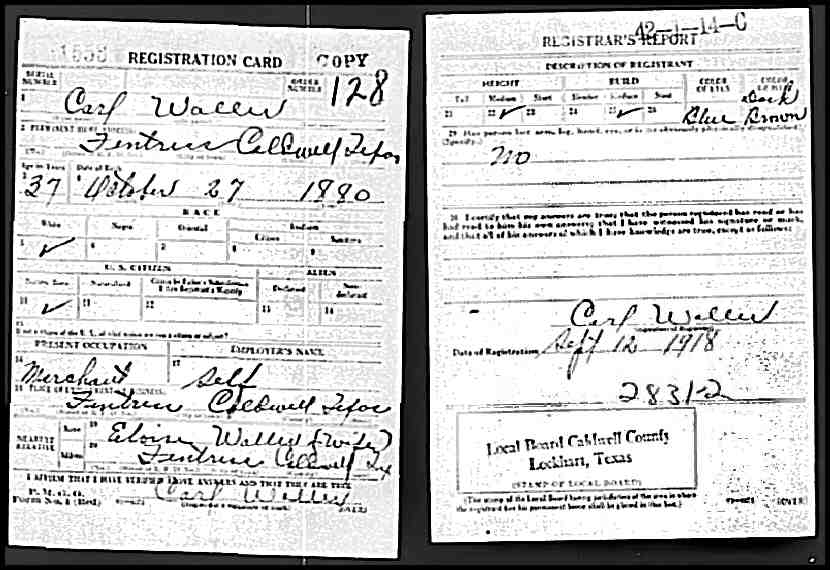 1555 REGISTRATION CARD COPY
SERIAL NUMBER ORDER NUMBER 128
1 Carl Waller
2 PERMANENT HOME ADDRESS:
Fentress Caldwell Texas
Age in Years Date of Birth
37 October 27 1880
RACE
White Negro Oriental Indian
Citizen
5 ✓ 6 7 8 9
U. S. CITIZEN ALIEN
Native Born Naturalized Citizen by Father's Naturalization Before Registrant's Majority Declared Non-declared
10 ✓ 11 12 13 14
15
If not a citizen of the U. S., of what nation are you a citizen or subject?
PRESENT OCCUPATION EMPLOYER'S NAME
16 Merchant 17 Self
18 PLACE OF EMPLOYMENT OR BUSINESS:
Fentress Caldwell Texas
NEAREST RELATIVE Name 19 Eloise Waller (wife)
Address 20 Fentress Caldwell Tex
I AFFIRM THAT I HAVE VERIFIED ABOVE ANSWERS AND THAT THEY ARE TRUE
P. M. G. O.
Form No. 1 (Red) Carl Waller
(Registrant's signature or mark) (OVER)
42-1-14-C
REGISTRAR'S REPORT
DESCRIPTION OF REGISTRANT
HEIGHT BUILD COLOR OF EYES COLOR OF HAIR
Tall Medium Short Slender Medium Stout
21 22 ✓ 23 24 25 ✓ 26 Blue Dark Brown
29 Has person lost arm, leg, hand, eye, or is he obviously physically disqualified?
(Specify.)
no
30 I certify that my answers are true; that the person registered has read or has
had read to him his own answers; that I have witnessed his signature or mark,
and that all of his answers of which I have knowledge are true, except as follows:
Carl Waller
(Signature of Registrar)
Date of Registration Sept 12 1918
2831-2
Local Board Caldwell County
Lockhart, Texas
(STAMP OF LOCAL BOARD)
(The stamp of the Local Board having jurisdiction of the area in which
the registrant has his permanent home shall be placed in this box.)
(OVER)